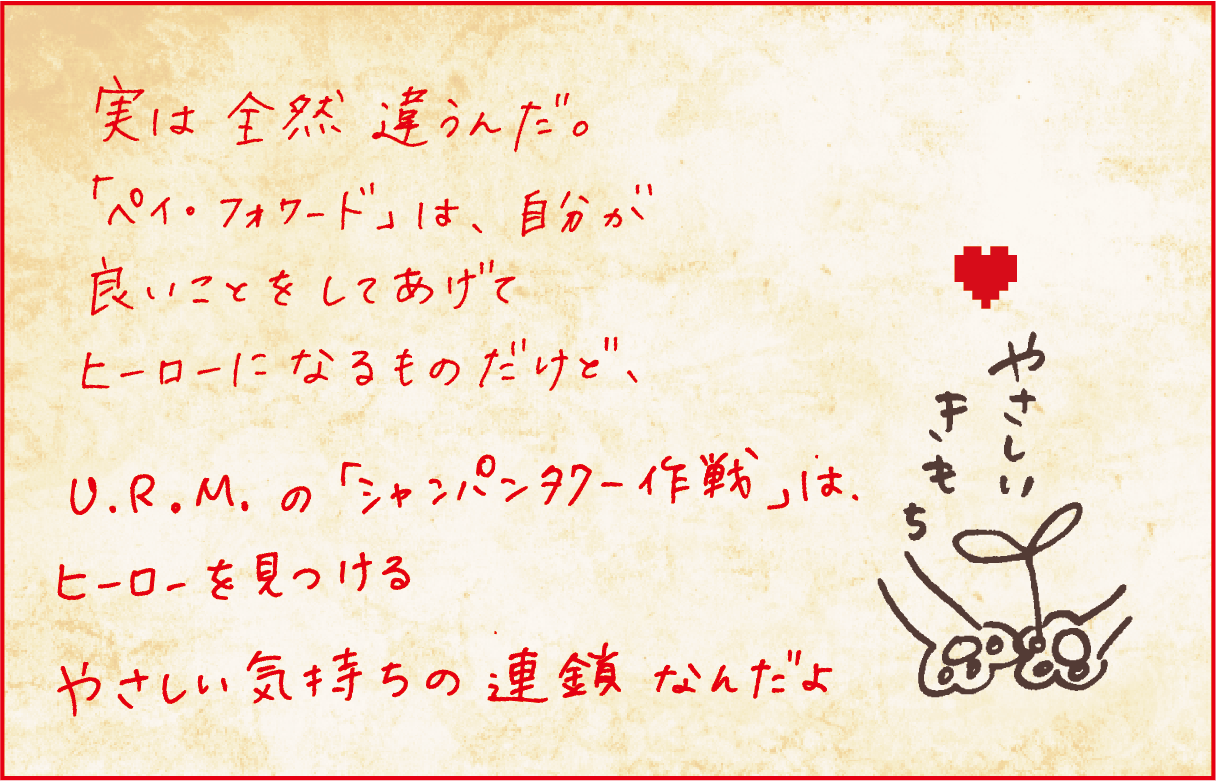 実は全然違うんだ。
「ペイ・フォワード」は、自分が
良いことをしてあげて
ヒーローになるものだけど、
U.R.M.の「シャンパンタワー作戦」は、
ヒーローを見つける
やさしい気持ちの連鎖なんだよ
やさしい
きもち